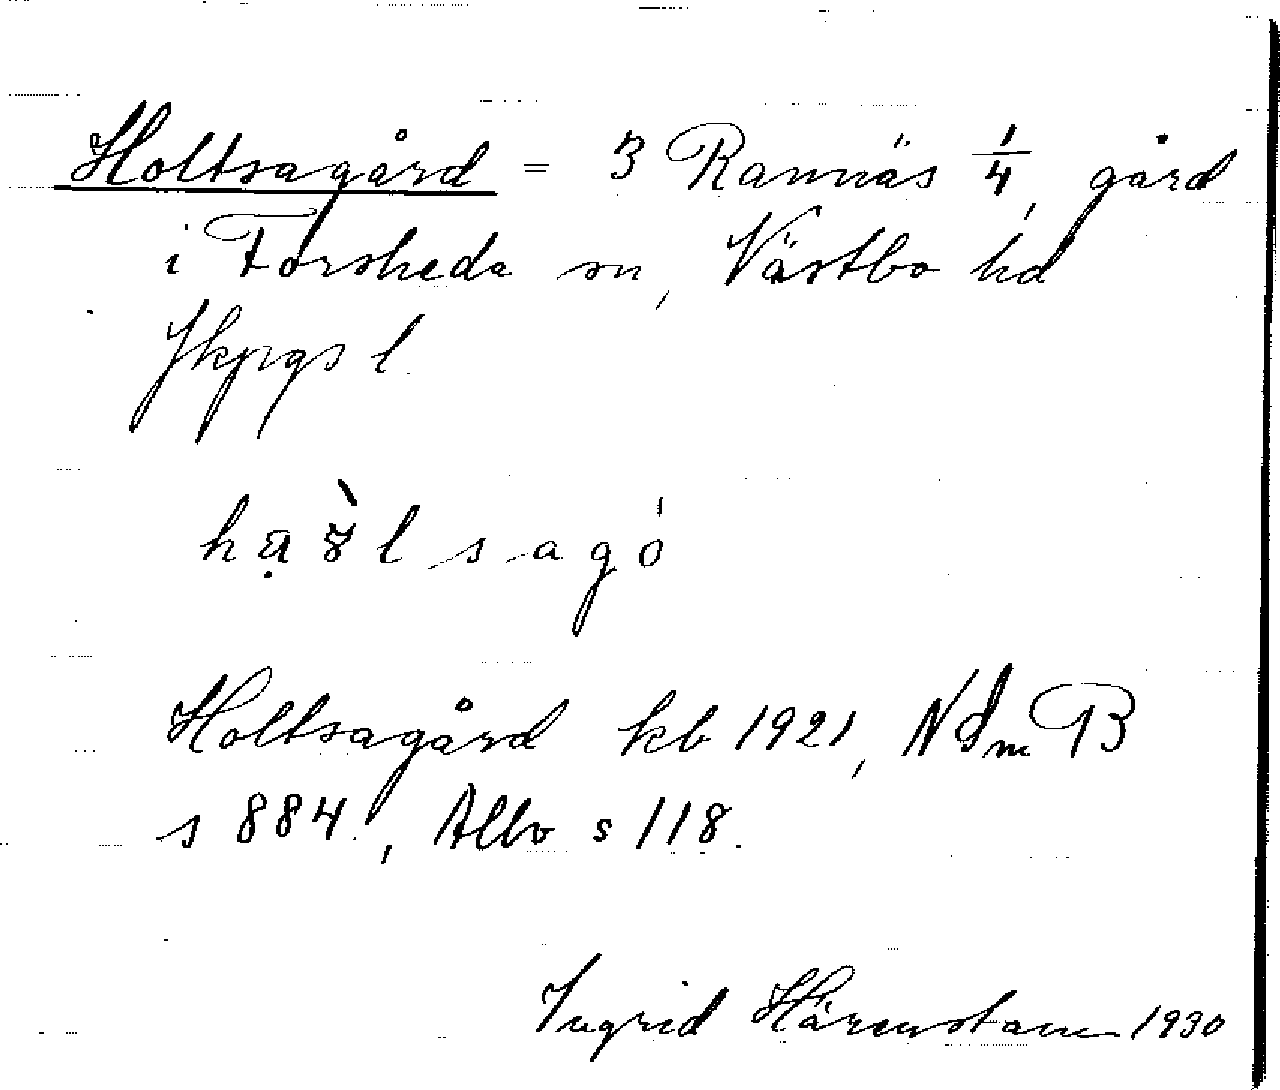 Holtsagård = 3 Rannäs 1/4, gård
i Forsheda sn, Västbo hd
Jkpgs l.
Holtsagård kb 1921, NSmB
s 884, Allvo s 118.
Ingrid Härenstam 1930